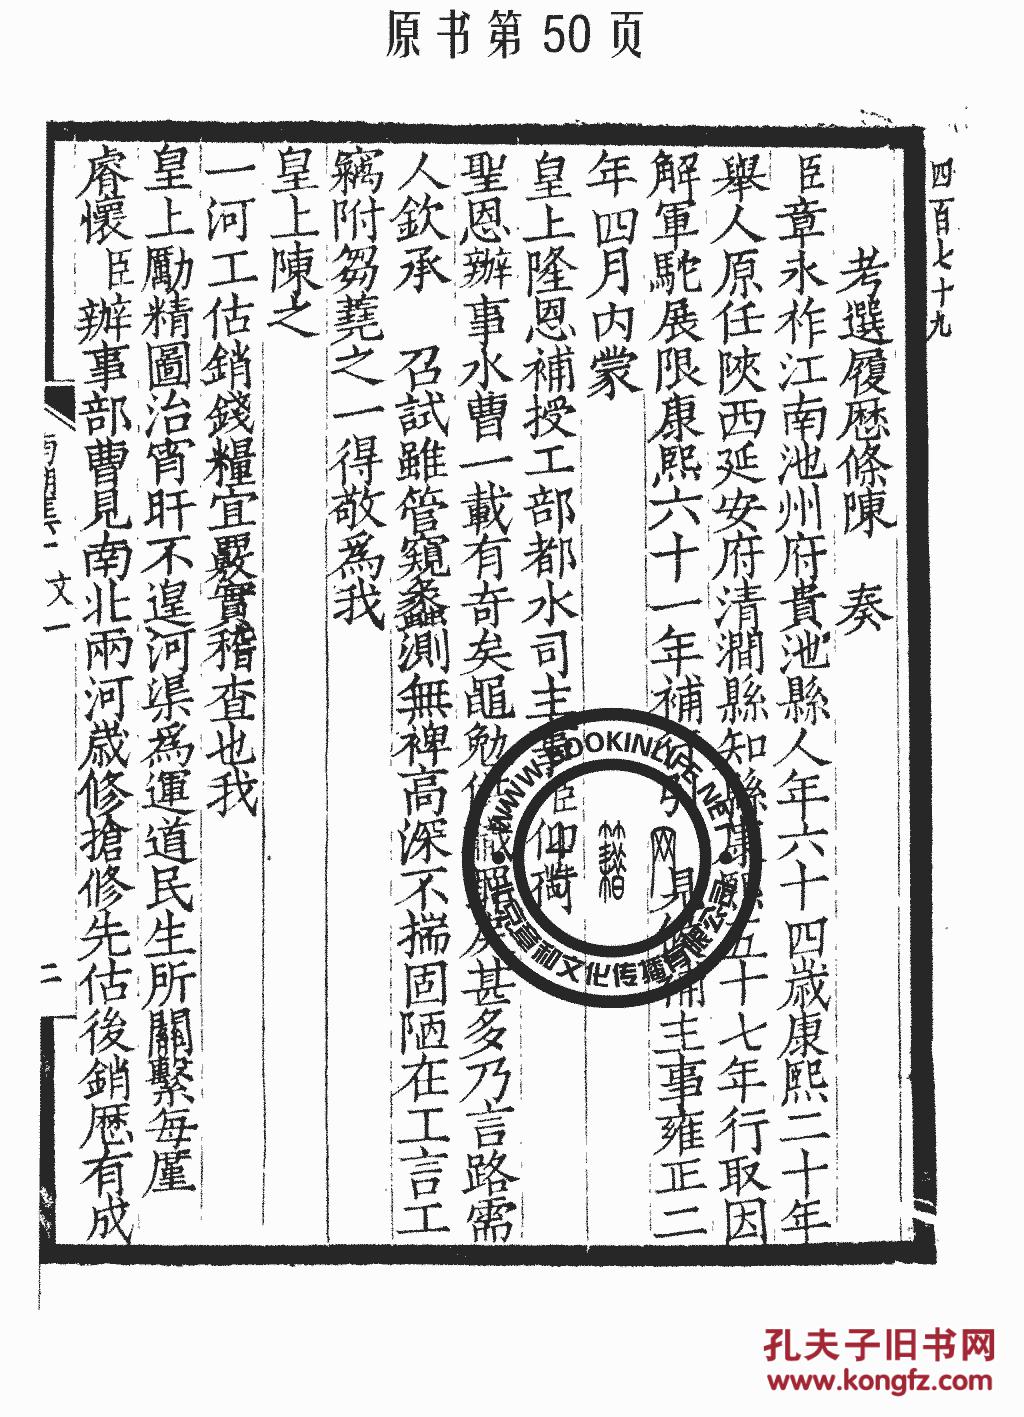 原书第50页
四百七十九
考選履歷條陳 奏
臣章永祚江南池州府貴池縣人年六十四歲康熙二十年
舉人原任陝西延安府清澗縣知縣康熙五十七年行取因
解軍駝展限康熙六十一年補 見 補主事雍正二
年四月內蒙
皇上隆恩補授工部都水司主事臣仰
聖恩辦事水曹一載有奇矣黽勉 職 甚多乃言路需
人欽承 召試雖管窺蠡測無裨高深不揣固陋在工言工
竊附芻蕘之一得敬為我
皇上陳之
一河工估銷錢糧宜覈實稽查也我
皇上勵精圖治宵旰不遑河渠為運道民生所關繫每廑
睿懷臣辦事部曹見南北兩河歲修搶修先估後銷歷有成
文一
二
WWW.BOOKINLIFE.NET
网
文化传播有限公司
孔夫子旧书网
www.kongfz.com